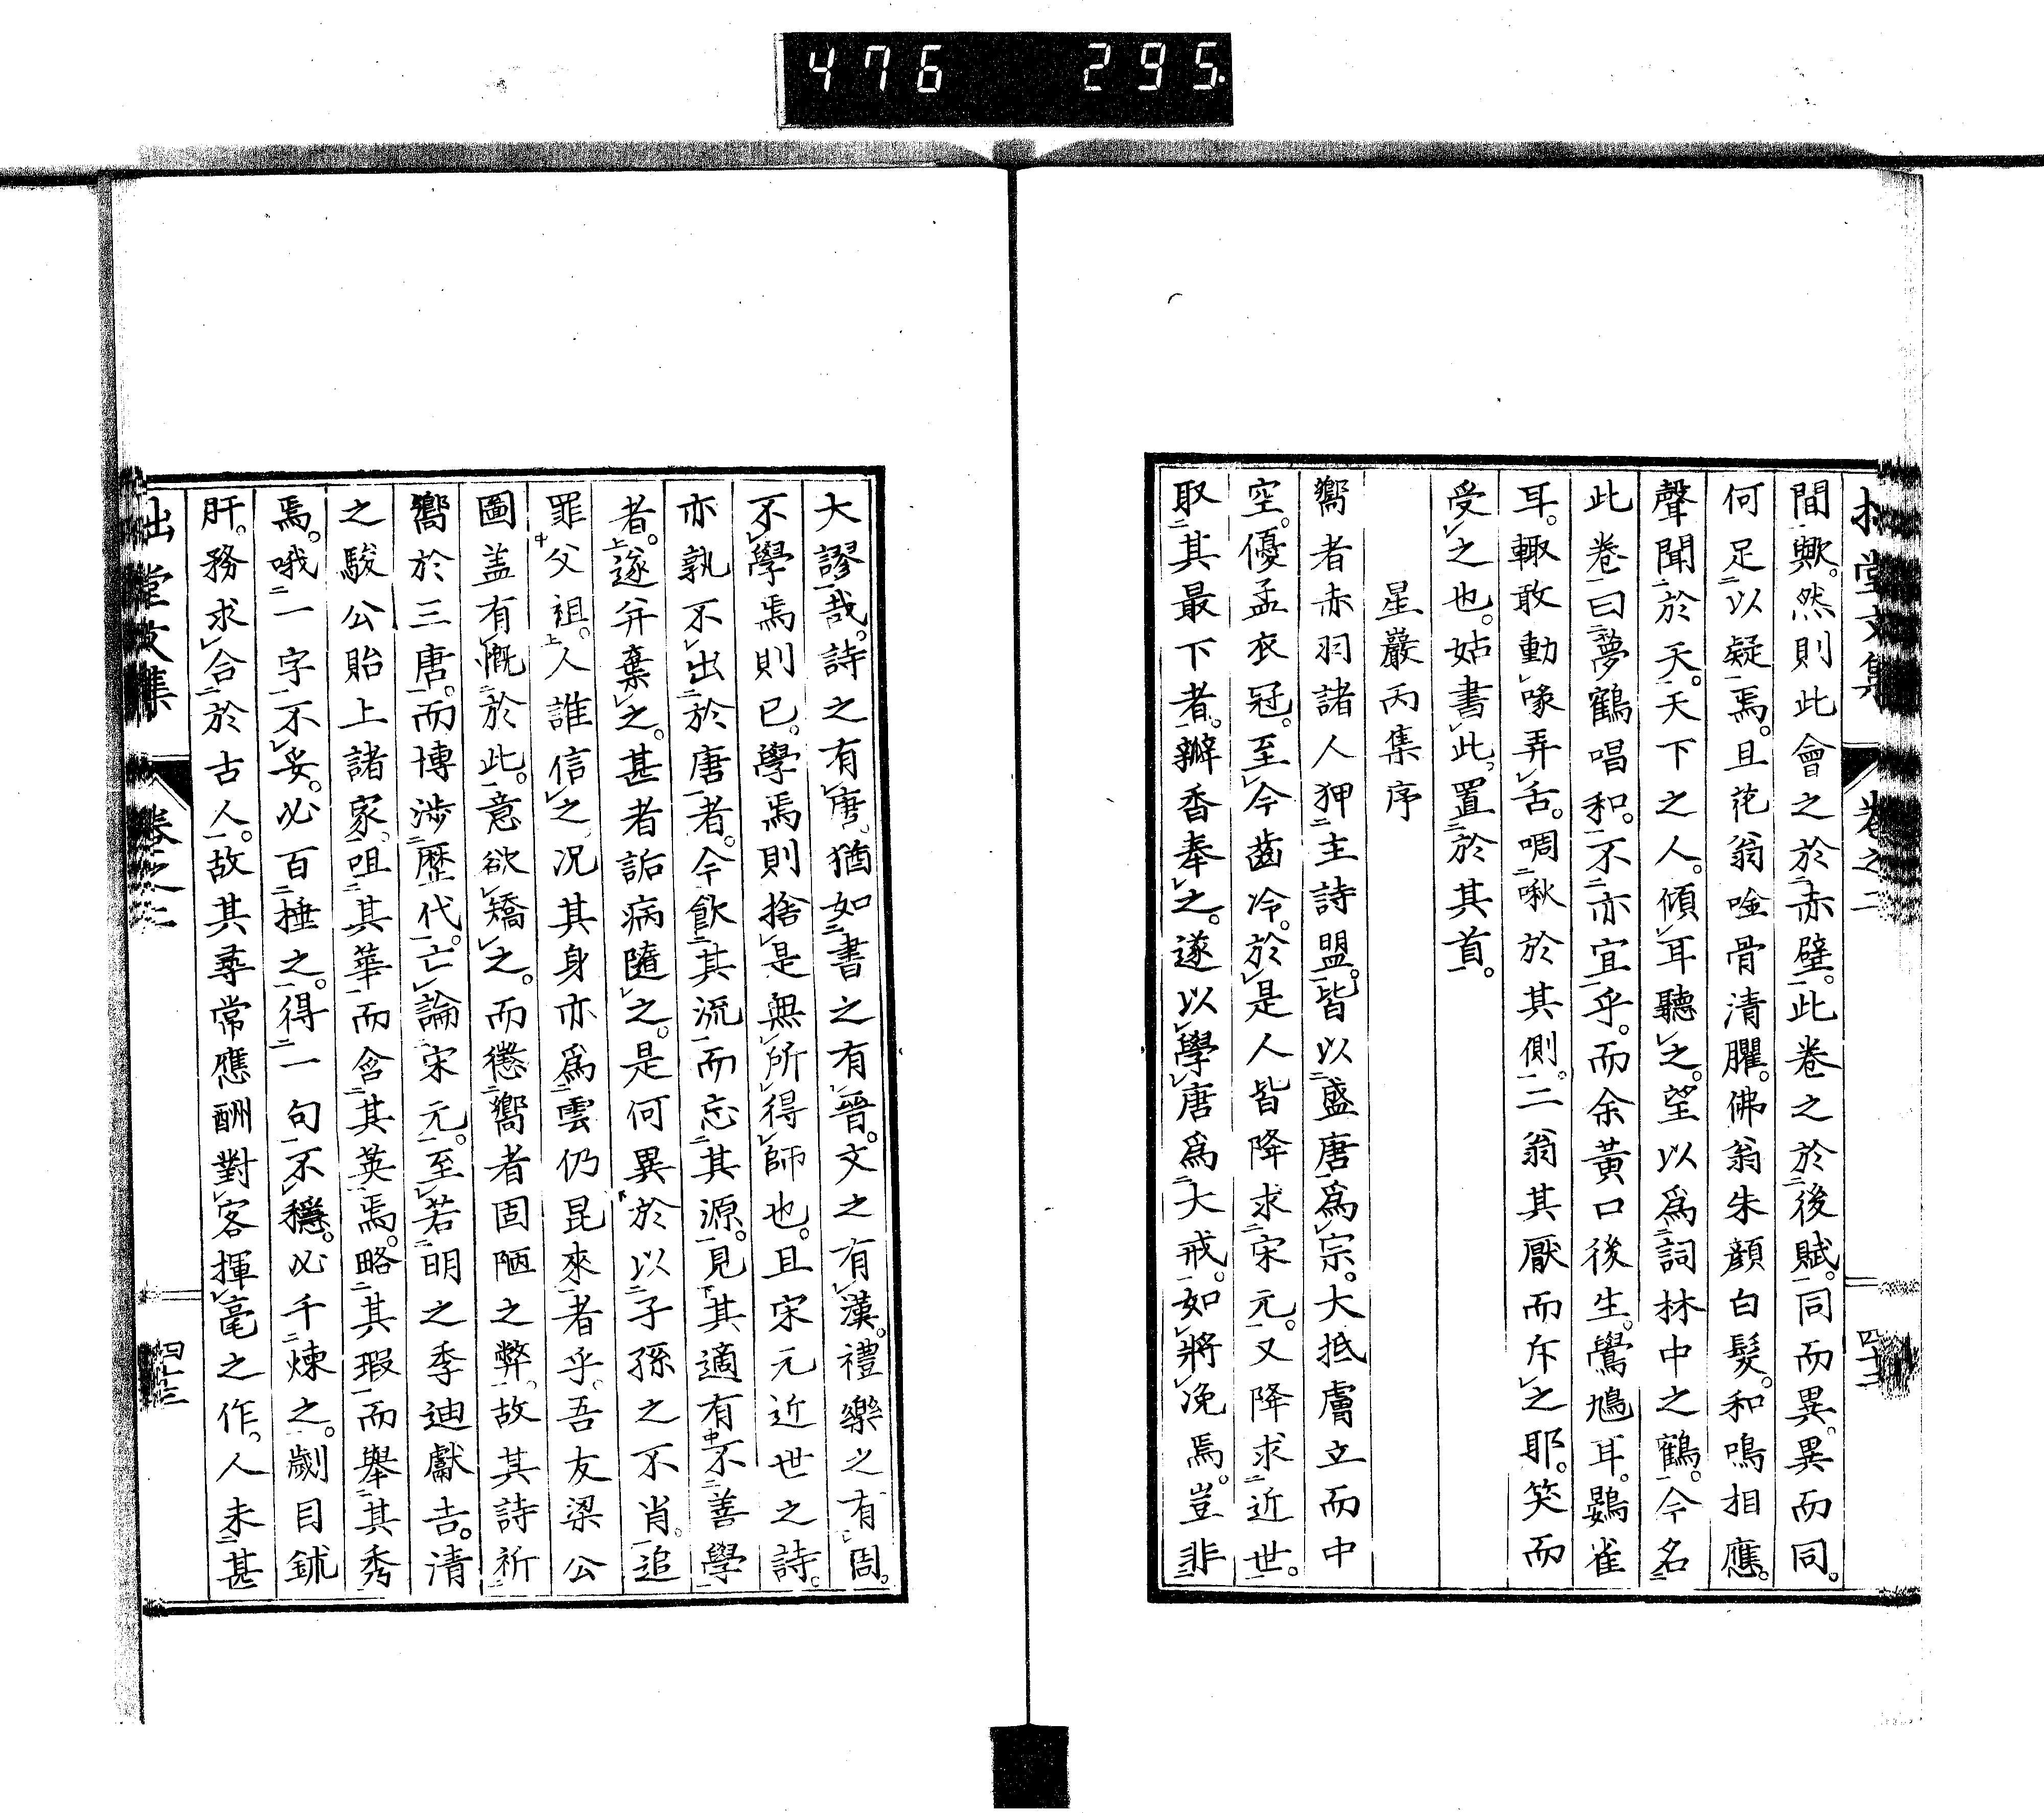 476 295
間歟。然則此會之於赤壁。此卷之於後賦。同而異。異而同。
何足以疑焉。且花翁唫骨清臞。佛翁朱顏白髮。和鳴相應。
聲聞於天。天下之人。傾耳聽之。望以爲詞林中之鶴。今名
此卷曰夢鶴唱和。不亦宜乎。而余黃口後生。鷽鳩耳。鷃雀
耳。輙敢動喙弄舌。啁啾於其側。二翁其厭而斥之耶。笑而
受之也。姑書此。置於其首。
星巖丙集序
嚮者赤羽諸人狎主詩盟。皆以盛唐爲宗。大抵膚立而中
空。優孟衣冠。至今齒冷。於是人皆降求宋元。又降求近世。
取其最下者。瓣香奉之。遂以學唐爲大戒。如將凂焉。豈非
堂文集
卷之二
大謬哉。詩之有唐。猶如書之有晉。文之有漢。禮樂之有周。
不學焉則已。學焉則捨是無所得師也。且宋元近世之詩。
亦孰不出於唐者。今飲其流而忘其源。見其適有不善學
者。遂并棄之。甚者詬病隨之。是何異於以子孫之不肖。追
罪父祖。人誰信之。況其身亦爲雲仍昆來者乎。吾友梁公
圖盖有慨於此。意欲矯之。而懲嚮者固陋之弊。故其詩祈
嚮於三唐。而博渉歷代。亡論宋元。至若明之季迪獻吉。清
之駿公貽上諸家。咀其華而含其英焉。略其瑕而舉其秀
焉。哦一字不妥。必百捶之。得一句不穩。必千煉之。劌目鉥
肝。務求合於古人。故其尋常應酬對客揮毫之作。人未甚
堂文集
卷之二
四十三